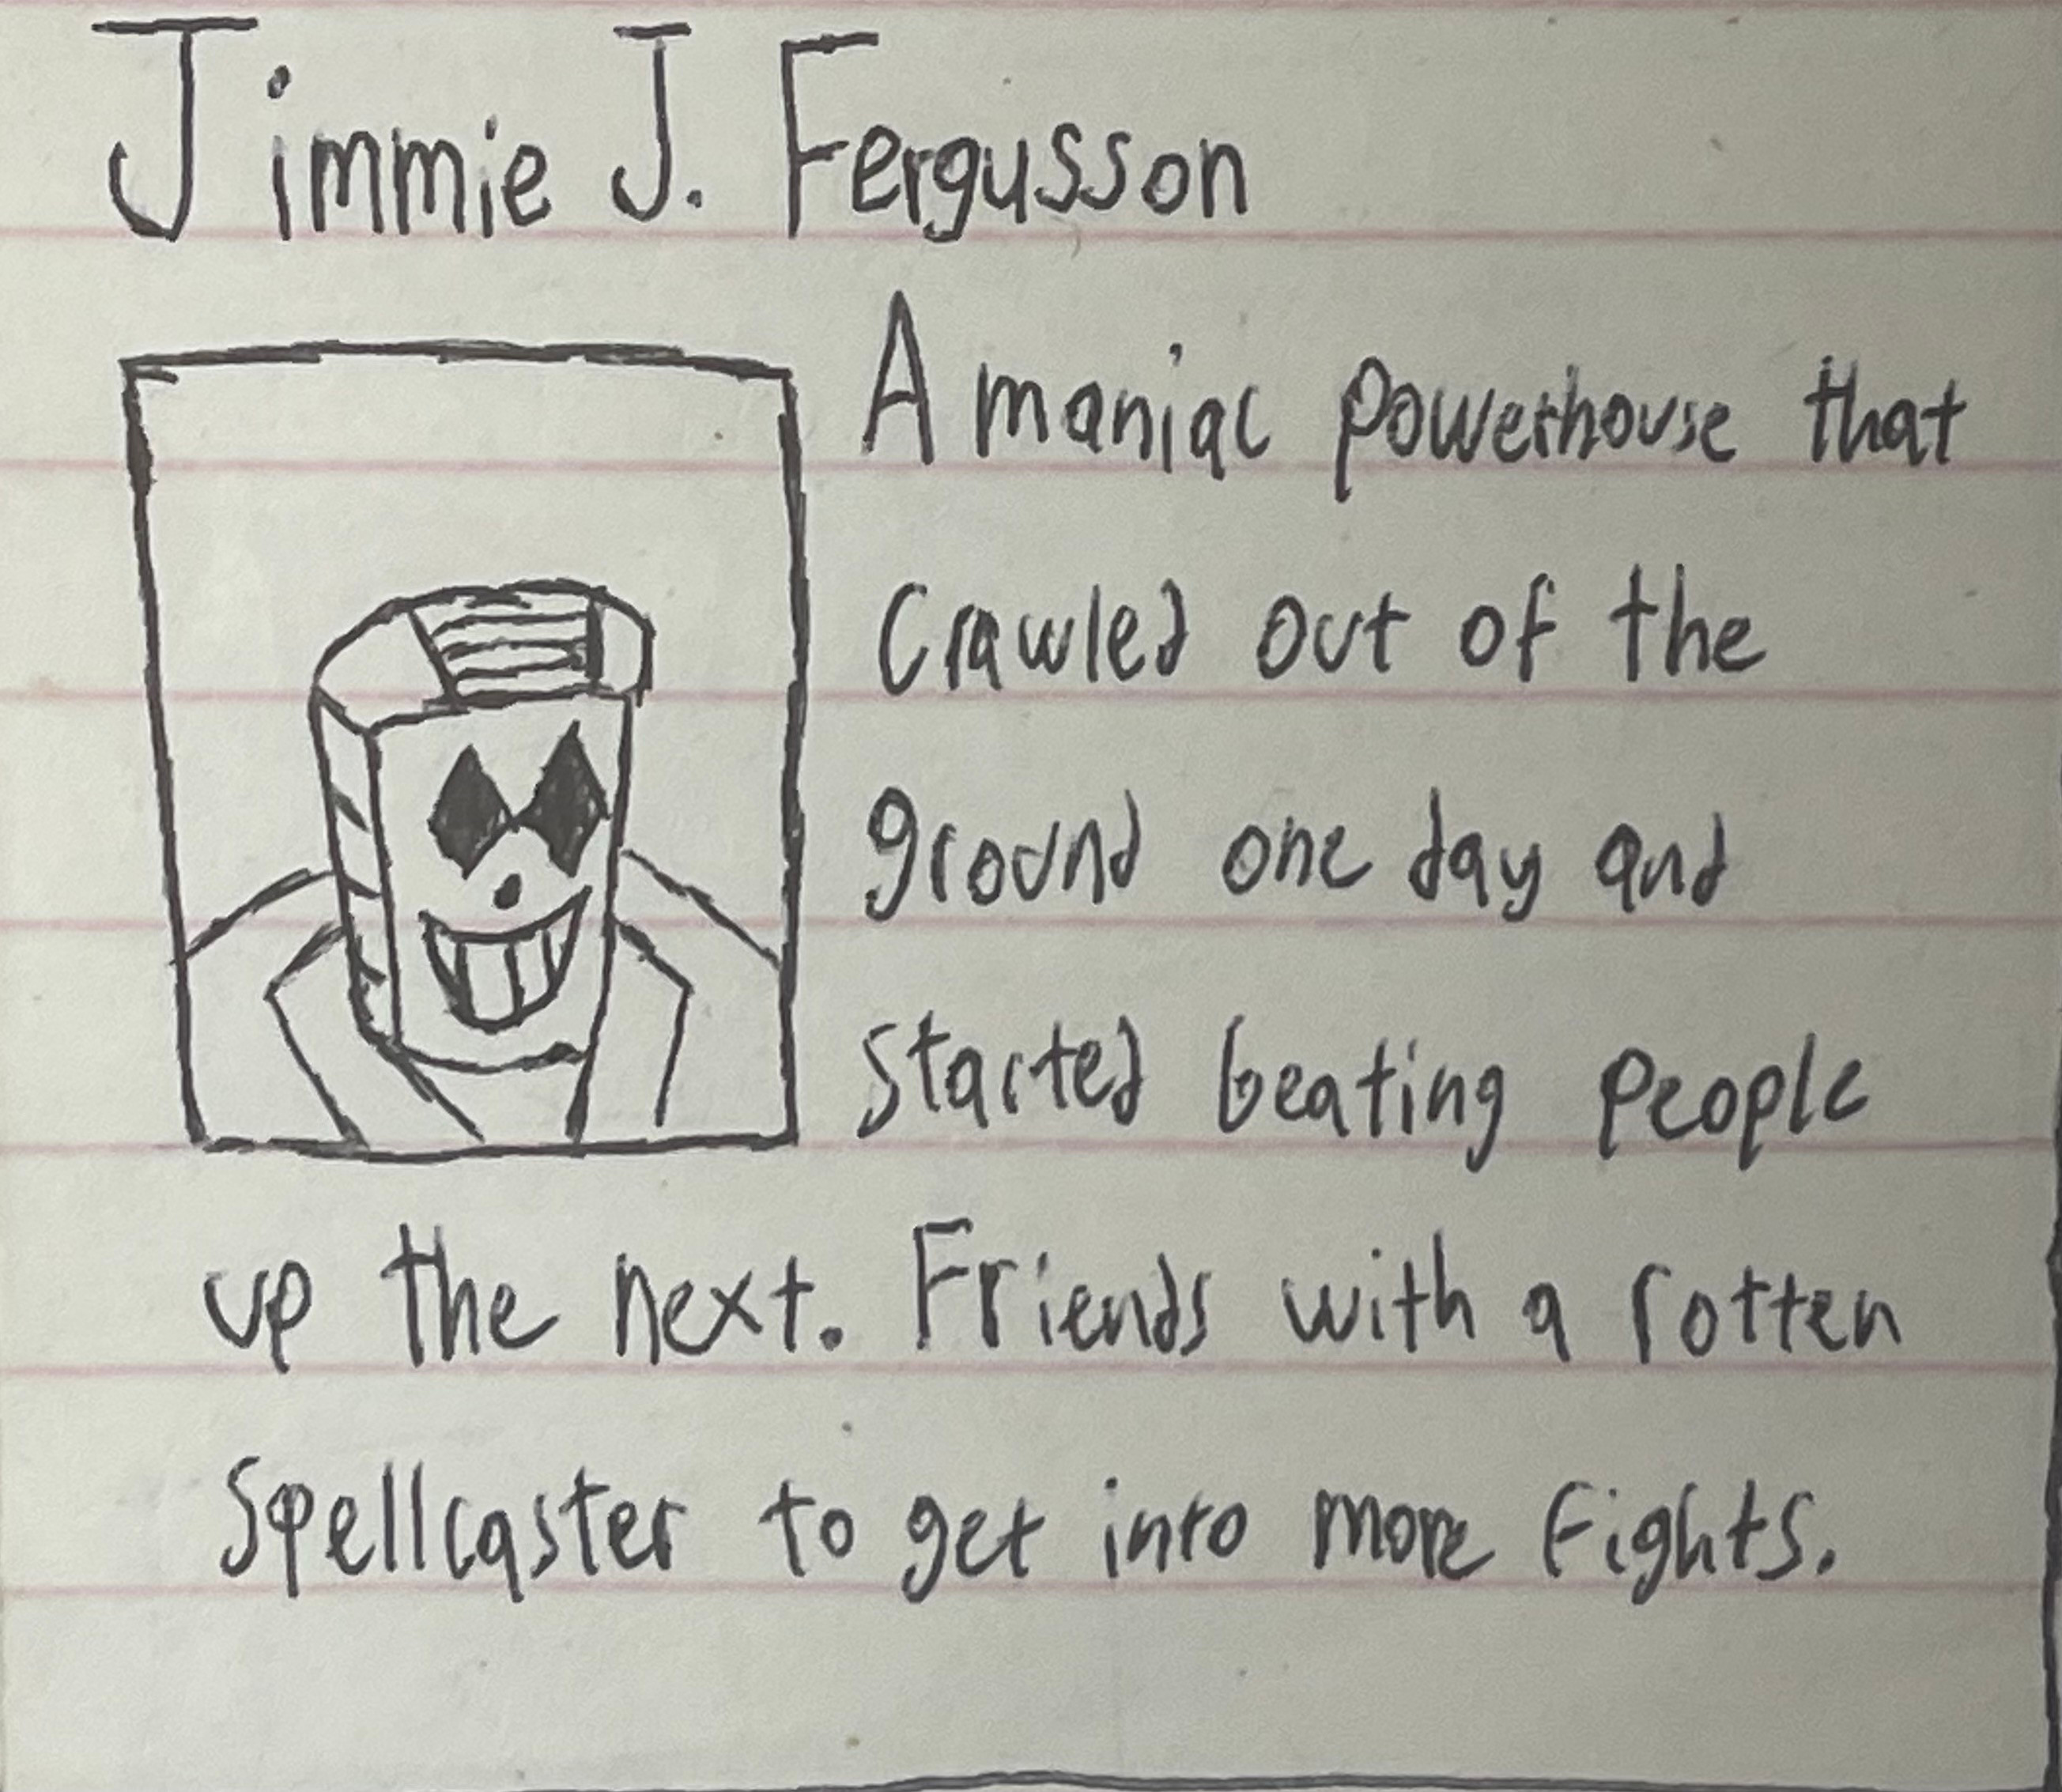 Jimmie J. Fergusson
A maniac powerhouse that
Crawled out of the
ground one day and
started beating people
up the next. Friends with a rotten
Spellcaster to get into more fights.